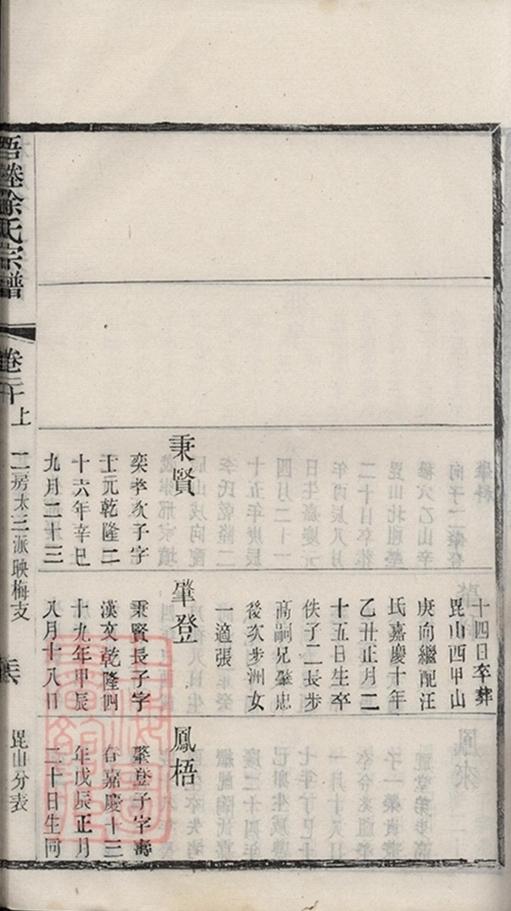 秉賢
奕孝次子字
士元乾隆二
十六年辛巳
九月二十三
十四日卒葬
崑山西甲山
庚向繼配汪
氏嘉慶十年
乙丑正月二
十五日生卒
佚子二長步
高嗣兄肇忠
後次步洲女
一適張
肇登
秉賢長子字
漢文乾隆四
十九年甲辰
八月十八日
鳳梧
肇登子字壽
春嘉慶十三
年戊辰正月
二十日生同
梧塍徐氏宗譜
卷二十上
二房太三派映梅支
崑山分表